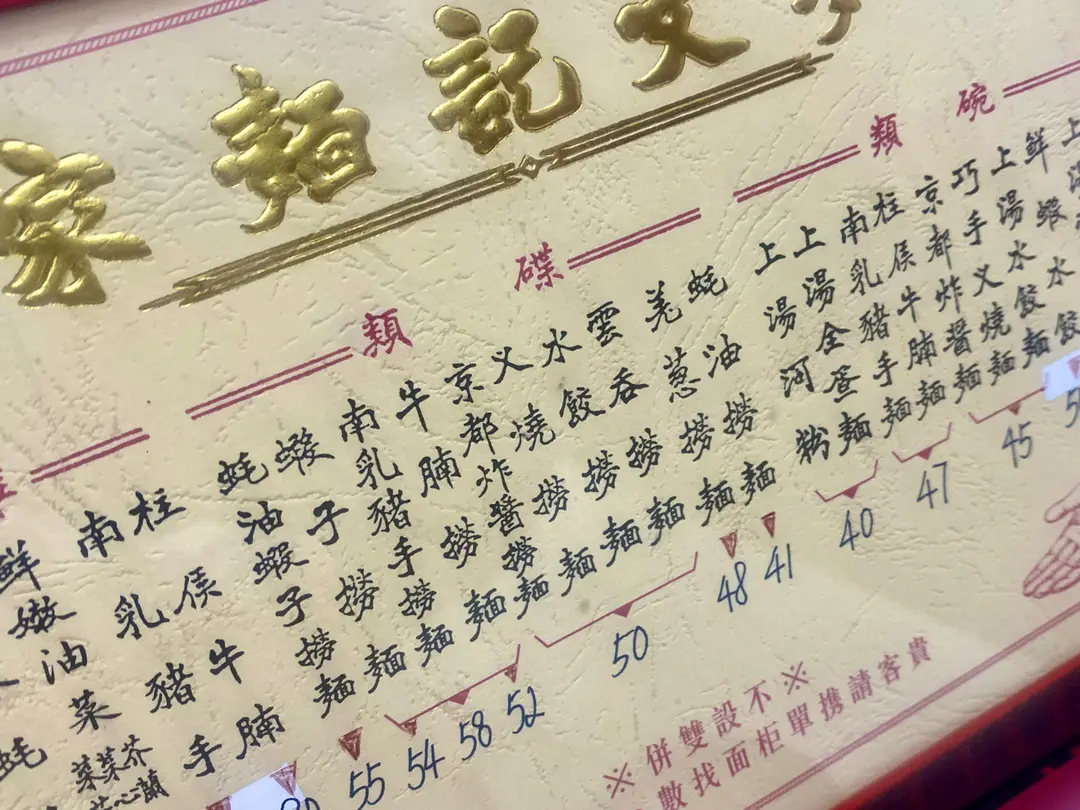 文記麵家
碗類
上湯水餃麵
巧手义燒麵
京都炸醬麵
柱侯牛腩麵
南乳豬手麵
上湯全蛋麵
上湯河粉
45
47
40
碟類
蚝油撈麵
羌蔥撈麵
雲吞撈麵
水餃撈麵
义燒撈麵
京都炸醬撈麵
牛腩撈麵
南乳豬手撈麵
蝦子撈麵
蚝油蝦子撈麵
41
48
50
52
58
54
55
類
柱侯牛腩
南乳豬手
※不設雙併※
貴客請携單柜面找數